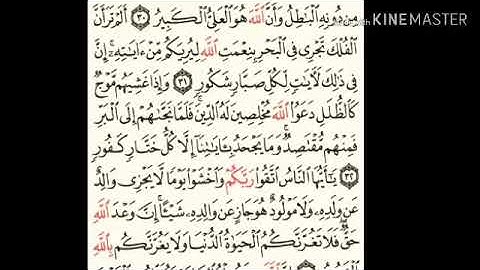 Made with KINEMASTER
مِن دُونِهِ الْبَاطِلُ وَأَنَّ اللَّهَ هُوَ الْعَلِيُّ الْكَبِيرُ ٣٠ أَلَمْ تَرَ أَنَّ
الْفُلْكَ تَجْرِي فِي الْبَحْرِ بِنِعْمَتِ اللَّهِ لِيُرِيَكُم مِّنْ ءَايَاتِهِ إِنَّ
فِي ذَٰلِكَ لَآيَاتٍ لِّكُلِّ صَبَّارٍ شَكُورٍ ٣١ وَإِذَا غَشِيَهُم مَّوْجٌ
كَالظُّلَلِ دَعَوُا اللَّهَ مُخْلِصِينَ لَهُ الدِّينَ فَلَمَّا نَجَّاهُمْ إِلَى الْبَرِّ
فَمِنْهُم مُّقْتَصِدٌ وَمَا يَجْحَدُ بِـَٔايَاتِنَا إِلَّا كُلُّ خَتَّارٍ كَفُورٍ
٣٢ يَا أَيُّهَا النَّاسُ اتَّقُوا رَبَّكُمْ وَاخْشَوْا يَوْمًا لَّا يَجْزِي وَالِدٌ
عَن وَلَدِهِ وَلَا مَوْلُودٌ هُوَ جَازٍ عَن وَالِدِهِ شَيْئًا إِنَّ وَعْدَ اللَّهِ
حَقٌّ فَلَا تَغُرَّنَّكُمُ الْحَيَاةُ الدُّنْيَا وَلَا يَغُرَّنَّكُم بِاللَّهِ